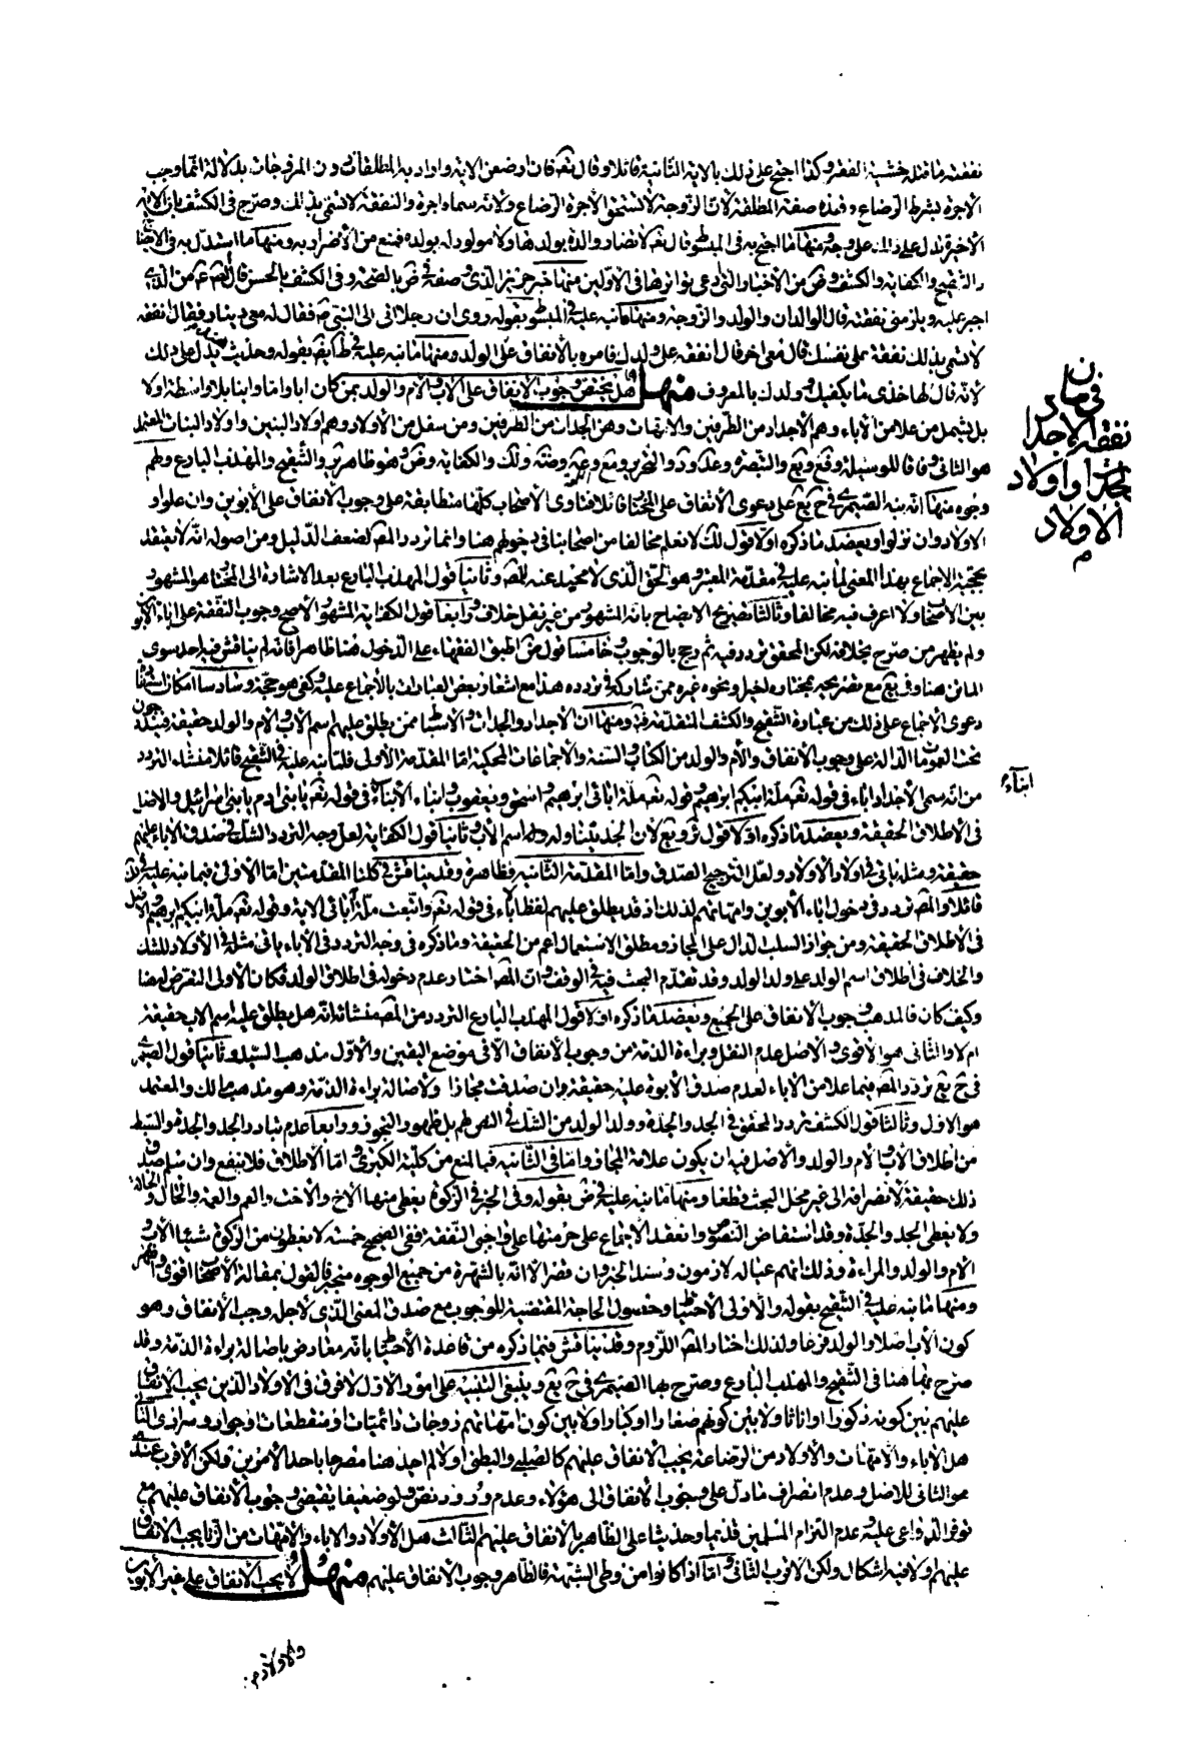 نفقته ما قتله خشية الفقر وكذا احتج على ذلك بالاية الثانية قائلا وقال تعم فان ارضعن الاية واراد به المطلقات دون المزوجات بدلالة انما وجب
الاجرة بشرط الرضاع وهذه صفة المطلقة لان الزوجة لا تستحق الاجرة الرضاع ولانه سماه اجرة والنفقة لا تسمى بذلك وصرح فى الكشف بان الاية
الاخيرة تدل على ذلك على وجه ومنها ما احتج به فى المبسوط قال تعم لا تضار والدة بولدها ولا مولود له بولده فمنع من الاضرار به ومنها ما استدل به فى
والتنقيح والكفاية والكشف وض من الاخبار والتى دعى تواترها فى الاولين منها خبر حريز الذى وصفه فى ض بالصحة وفى الكشف بالحسن قال قلت من الذى
اجبر عليه ويلزمنى نفقته قال الوالدان والولد والزوجة ومنها ما نبه عليه فى المبسوط بقوله روى ان رجلا اتى الى النبى ص فقال له معى دينار فقال انفقه
على نفسك قال معى اخر قال انفقه على ولدك فامره بالانفاق على الولد ومنها ما نبه عليه فى بقوله وحديث هند يدل على ذلك
لانه قال لها خذى ما يكفيك وولدك بالمعروف منها هل يختص وجوب الانفاق على الاب والام والولد بمن كان ابا واما وابنا بلا واسطة اولا
بل يشمل من علا من الاباء وهم الاجداد من الطرفين والامهات وهن الجدات من الطرفين ومن سفل من الاولاد وهم اولاد البنين واولاد البنات المعتمد
هو الثانى وفاقا للوسيلة وقع ويع والتبصرة وعد ود والتحرير وضه ولك والكفاية وض وهو ظاهر ير والتنقيح والمهذب البارع ولهم
وجوه منها انه نبه الصيمرى فى ح يع على دعوى الاتفاق على المختار قائلا فتاوى الاصحاب كلها متطابقة على وجوب الانفاق على الابوين وان علوا و
الاولاد وان نزلوا ويعضد ما ذكره اولا قول لك لا نعلم مخالفا من اصحابنا فى دخولهم هنا وانما تردد المص لضعف الدليل ومن اصوله انه لا يعتقد
بحجية الاجماع بهذا المعنى لما نبه عليه فى مقدمة المعتبر وهو الحق الذى لا محيد عنه للمص وثانيا قول المهذب البارع بعد الاشارة الى المختار هو المشهور
بين الاصحاب ولا اعرف فيه مخالفا وثالثا تصريح الايضاح بانه المشهور من غير نقل خلاف ورابعا قول الكفاية المشهور الاصح وجوب النفقة على اباء الابوين
ولم يظهر من صرح بخلافه لكن المحقق تردد فيه ثم رجح بالوجوب وخامسا قول ض اطبق الفقهاء على الدخول هنا ظاهرا فانه لم يناقش فيه احد سوى
الماتن هنا وفى يع مع تصريحه بمختاره اخيرا ونحوه غيره ممن شاركه فى تردده هذا مع اشعار بعض العبارات بالاجماع عليه وكفى هو حجة وسادسا امكان استفادة
دعوى الاجماع على ذلك من عبارة التنقيح والكشف المتقدمة فة ومنها ان الاجداد والجدات والاسباط ممن يطلق عليهم اسم الاب والام والولد حقيقة فيندرجون
تحت العمومات الدالة على وجوب الانفاق والام والولد من الكتاب والسنة والاجماعات المحكية اما المقدمة الاولى فلما نبه عليه فى التنقيح قائلا منشاء التردد
من انه سمى الاجداد اباء فى قوله تعم ملة ابيكم ابرهيم وقوله تعم ملة ابائى ابرهيم واسحق ويعقوب وابناء الابناء فى قوله تعم يا بنى ادم يا بنى اسرائيل والاصل
فى الاطلاق الحقيقة ويعضد ما ذكره اولا قول لان الجد يتناوله اسم الاب وثانيا قول الكفاية لعل وجه التردد الشك فى صدق الاباء عليهم
حقيقة ومثله ياتى فى اولاد الاولاد ولعل الترجيح الصدق واما المقدمة الثانية فظاهرة وقد يناقش فى كلتا المقدمتين اما الاولى فبما نبه عليه
قائلا والمص تردد فى دخول اباء الابوين وامهاتهم لذلك اذ قد يطلق عليهم لفظ الاباء فى قوله تعم واتبعت ملة ابائى الاية وقوله تعم ملة ابيكم ابرهيم والاصل
فى الاطلاق الحقيقة ومن جواز السلب الدال على المجاز ومطلق الاستعمال اعم من الحقيقة وما ذكره فى وجه التردد فى الاباء ياتى مثله فى الاولاد للشك
والخلاف فى اطلاق اسم الولد على ولد الولد وقد تقدم البحث فيه فى الوقف وان المص اختار عدم دخوله فى اطلاق الولد فكان الاولى التعرض لهما
وكيف كان فالمذهب وجوب الانفاق على الجميع ويعضد ما ذكره اولا قول المهذب البارع التردد من المص منشائه انه هل يطلق عليه اسم الاب حقيقة
ام لا والثانى هو الاقوى والاصل عدم النقل وبراءة الذمة من وجوب الانفاق الا فى موضع اليقين والاول مذهب السيد وثانيا قول الصيمرى
فى ح يع تردد المص فيما علا من الاباء لعدم صدق الابوة عليه حقيقة وان صدقت مجازا ولاصالة براءة الذمة وهو مذهب مالك والمعتمد
هو الاول وثالثا قول الكشف تردد المحقق فى الجد والجدة وولد الولد من الشك فى النص لهم بل ظهور التجوز ورابعا عدم تبادر الجد والجدة والسبط
من اطلاق الاب والام والولد والاصل فيه ان يكون علامة المجاز واما فى الثانية فبالمنع من كلية الكبرى اما الاطلاق فلا ينفع وان سلم صدق
ذلك حقيقة لانصرافه الى غير محل البحث قطعا ومنها ما نبه عليه فى ض بقوله وفى الخبر فى الزكوة يعطى منها الاخ والاخت والعم والعمة والخال والخالة
ولا يعطى الجد والجدة وقد استفاض النصوص وانعقد الاجماع على حرمتها على واجبى النفقة ففى الصحيح خمسة لا يعطون من الزكوة شيئا الاب و
الام والولد والمراءة وذلك انهم عياله لازمون وسند الخبر وان قصر الا انه بالشهرة من جميع الوجوه منجبر فالقول بمقالة الاصحاب اقوى واظهر
ومنها ما نبه عليه فى التنقيح بقوله والاولى الاحتياط وحصول الحاجة المقتضية للوجوب مع صدق المعنى الذى لاجله وجب الانفاق وهو
كون الاب اصلا والولد فرعا ولذلك اختار المص اللزوم وقد يناقش فيما ذكره من قاعدة الاحتياط بانه معارض باصالة براءة الذمة وقد
صرح بها هنا فى التنقيح والمهذب البارع وصرح بها الصيمرى فى ح يع وينبغى التنبيه على امور الاول لا فرق فى الاولاد الذين يجب الانفاق
عليهم بين كونه ذكورا او اناثا ولا بين كونهم صغارا او كبارا ولا بين كون امهاتهم زوجات دائميات او منقطعات او جوار وسرارى الثانى
هل الاباء والامهات والاولاد من الرضاعة يجب الانفاق عليهم كالصلبى والبطنى اولا لم اجد هنا مصرحا باحد الامرين ولكن الاقرب عندى
هو الثانى للاصل وعدم انصراف ما دل على وجوب الانفاق الى هؤلاء وعدم ورود نص ولو ضعيفا يقتضى وجوب الانفاق عليهم مع
توفر الدواعى عليه وعدم التزام المسلمين قديما وحديثا على الظاهر بالانفاق عليهم الثالث هل الاولاد والاباء والامهات من الزنا يجب الانفاق
عليهم اولا فيه اشكال ولكن الاقرب الثانى واما اذا كانوا من وطى الشبهة فالظاهر وجوب الانفاق عليهم منها لا يجب الانفاق على غير الابوين
فى بيان نفقة الاجداد والجدات واولاد الاولاد
ابناء
والاولاد